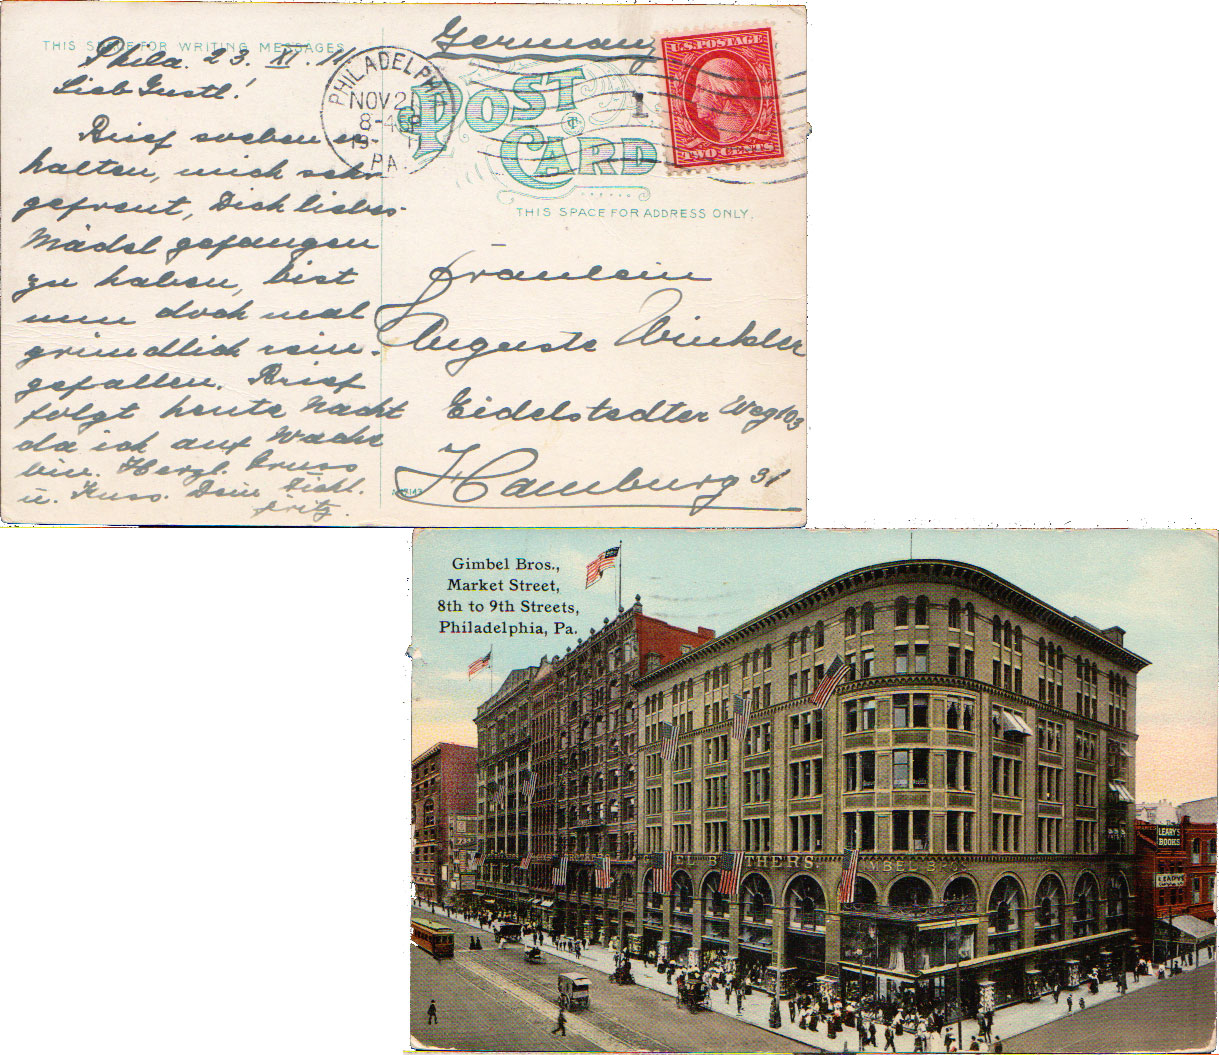 THIS SPACE FOR WRITING MESSAGES
Phila. 23. XI. 11
Lieb Gustl!
Brief soeben er
halten, mich sehr
gefreut, Dich liebes
Mädel gefangen
zu haben, bist
nun doch mal
gründlich rein-
gefallen. Brief
folgt heute Nacht
da ich auf Wache
bin. Herzl. Gruss
u. Kuss. Dein Dichl.
Fritz.
Germany
PHILADELPHIA
NOV 2
8-4
PA.
1
U.S. POSTAGE
TWO CENTS
POST
CARD
THIS SPACE FOR ADDRESS ONLY.
Fräulein
Auguste Winkler
Eidelstedter Weg 103
Hamburg 31
Gimbel Bros.,
Market Street,
8th to 9th Streets,
Philadelphia, Pa.
BROTHERS
LEARY'S
BOOKS